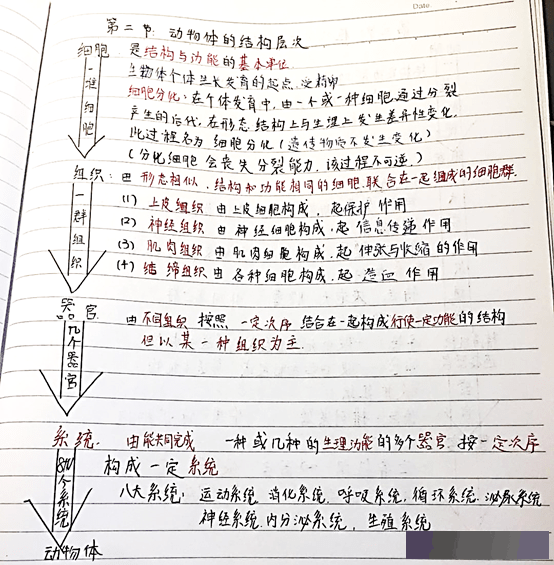 Date
第二节 动物体的结构层次
细胞 是结构与功能的基本单位
生物体个体生长发育的起点,受精卵
细胞分化:在个体发育中,由一个或一种细胞通过分裂
产生的后代,在形态结构上与生理上发生差异性变化,
此过程名为细胞分化(遗传物质不发生变化)
(分化细胞会丧失分裂能力,该过程不可逆)
一堆细胞
组织:由形态相似、结构和功能相同的细胞,联合在一起组成的细胞群
(1) 上皮组织 由上皮细胞构成,起保护作用
(2) 神经组织 由神经细胞构成,起信息传递作用
(3) 肌肉组织 由肌肉细胞构成,起伸张与收缩的作用
(4) 结缔组织 由各种细胞构成,起 作用
一群组织
器官 由不同组织 按照 一定次序 结合在一起构成行使一定功能的结构
但以某一种组织为主.
几个器官
系统. 由能共同完成 一种或几种的生理功能的多个器官 按一定次序
构成一定系统
八大系统:运动系统 消化系统,呼吸系统,循环系统,泌尿系统
神经系统,内分泌系统,生殖系统
个系统
动物体